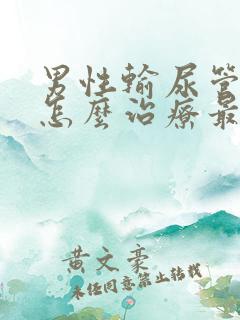 男性輸尿管
怎麼治療最
黄文豪
未经同意禁止转载